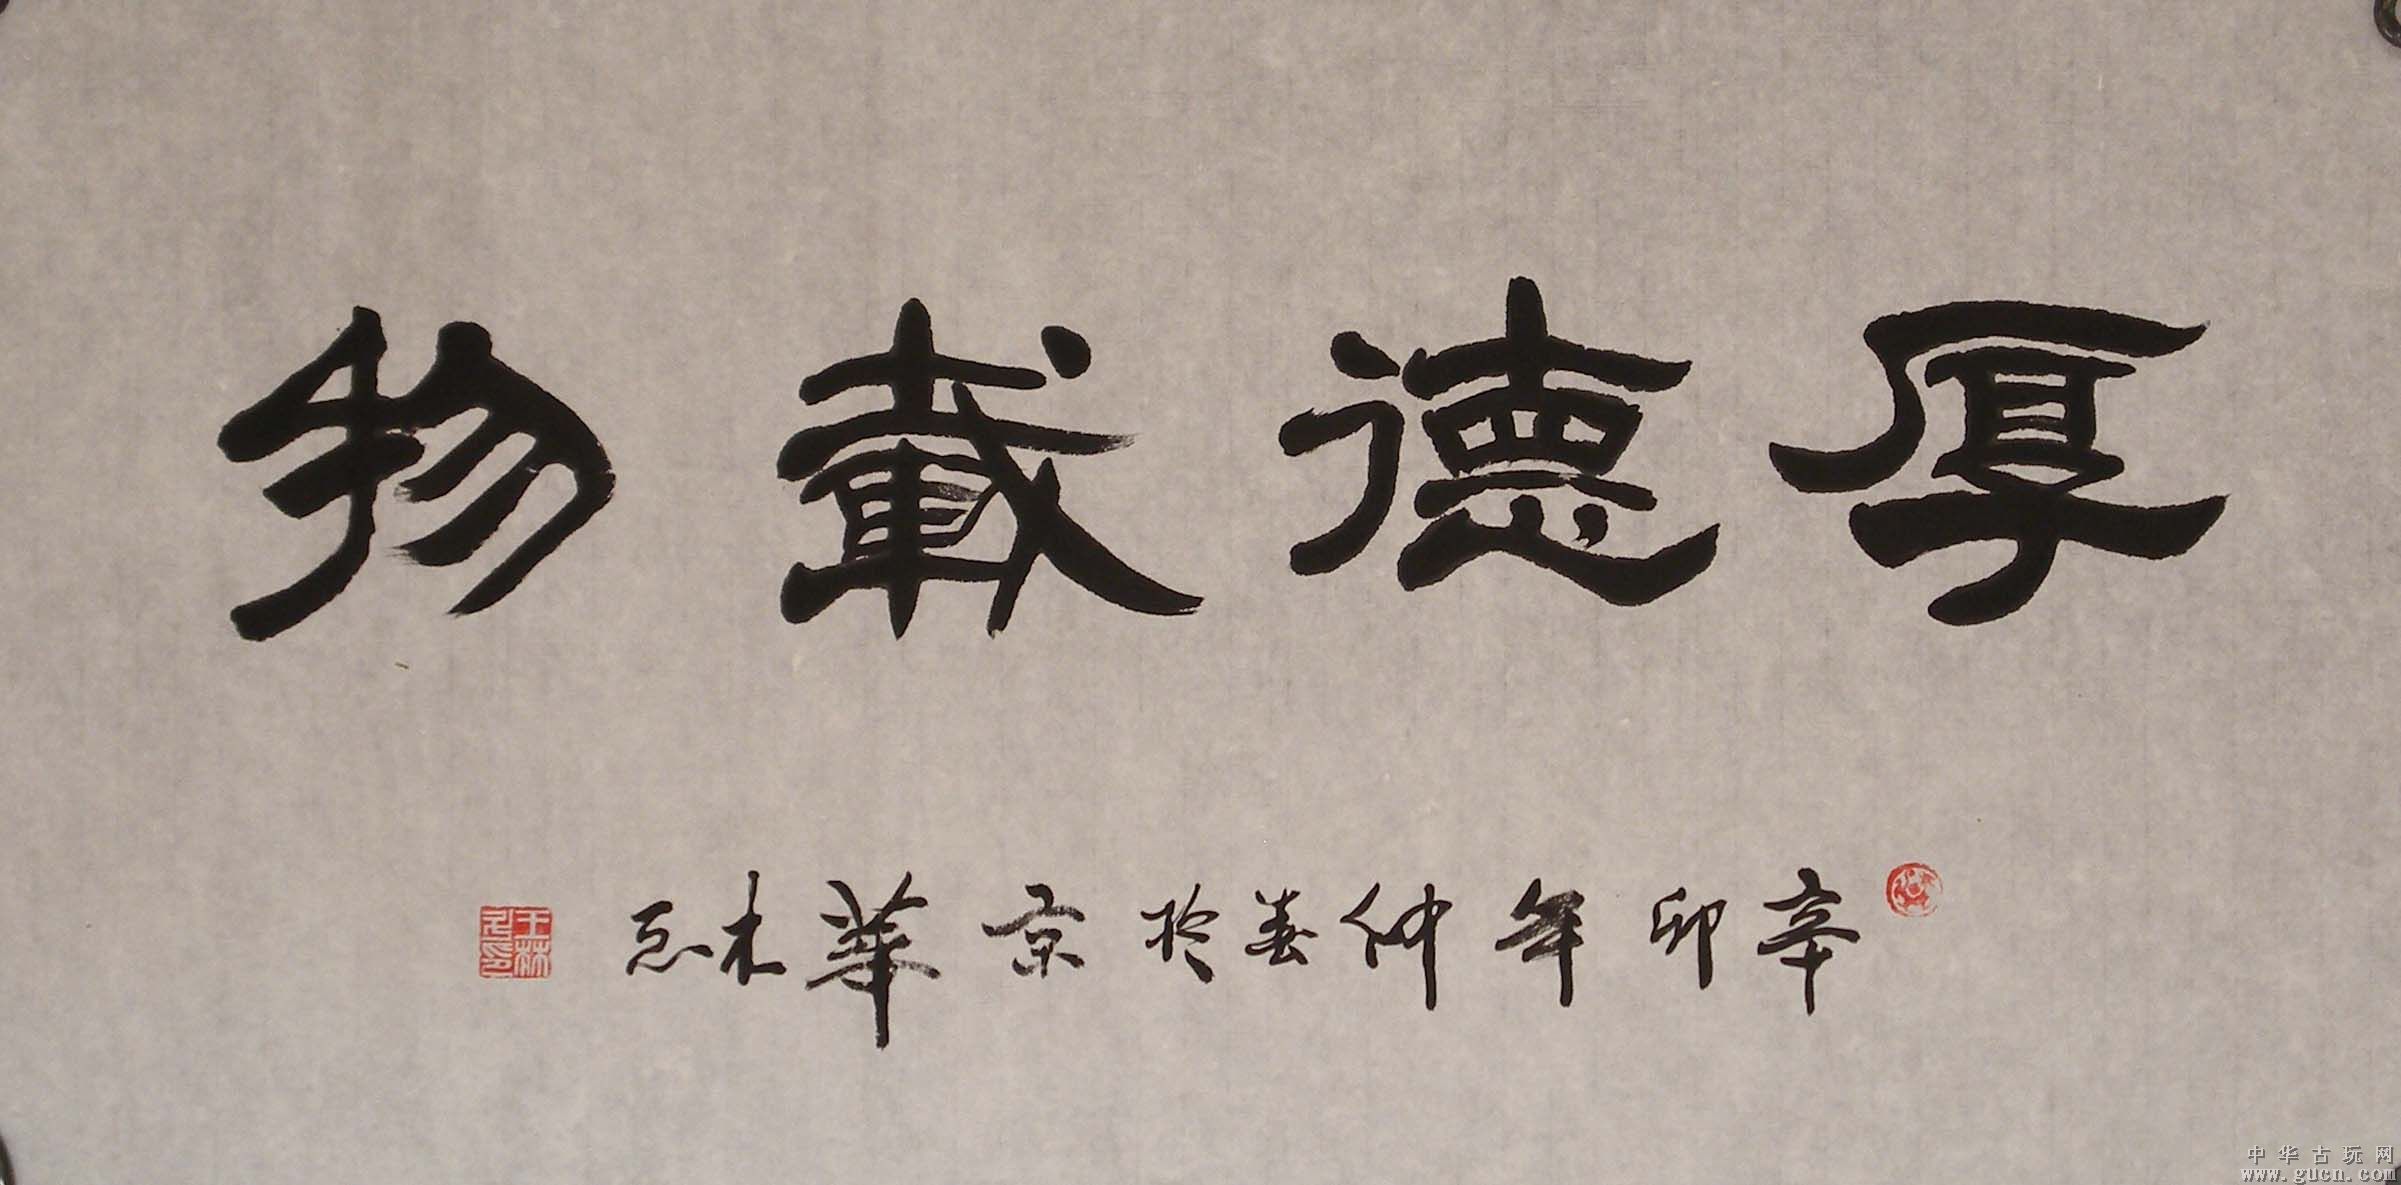 厚德載物
辛卯年仲春於京華木
王林
印
中华古玩网
www.gucn.com